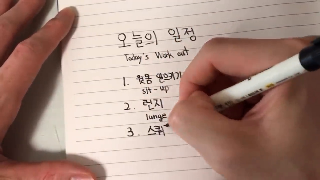 오늘의 일정
Today's Work out
1. 윗몸 일으키기
sit-up
2. 런지
lunge
3. 스쿼